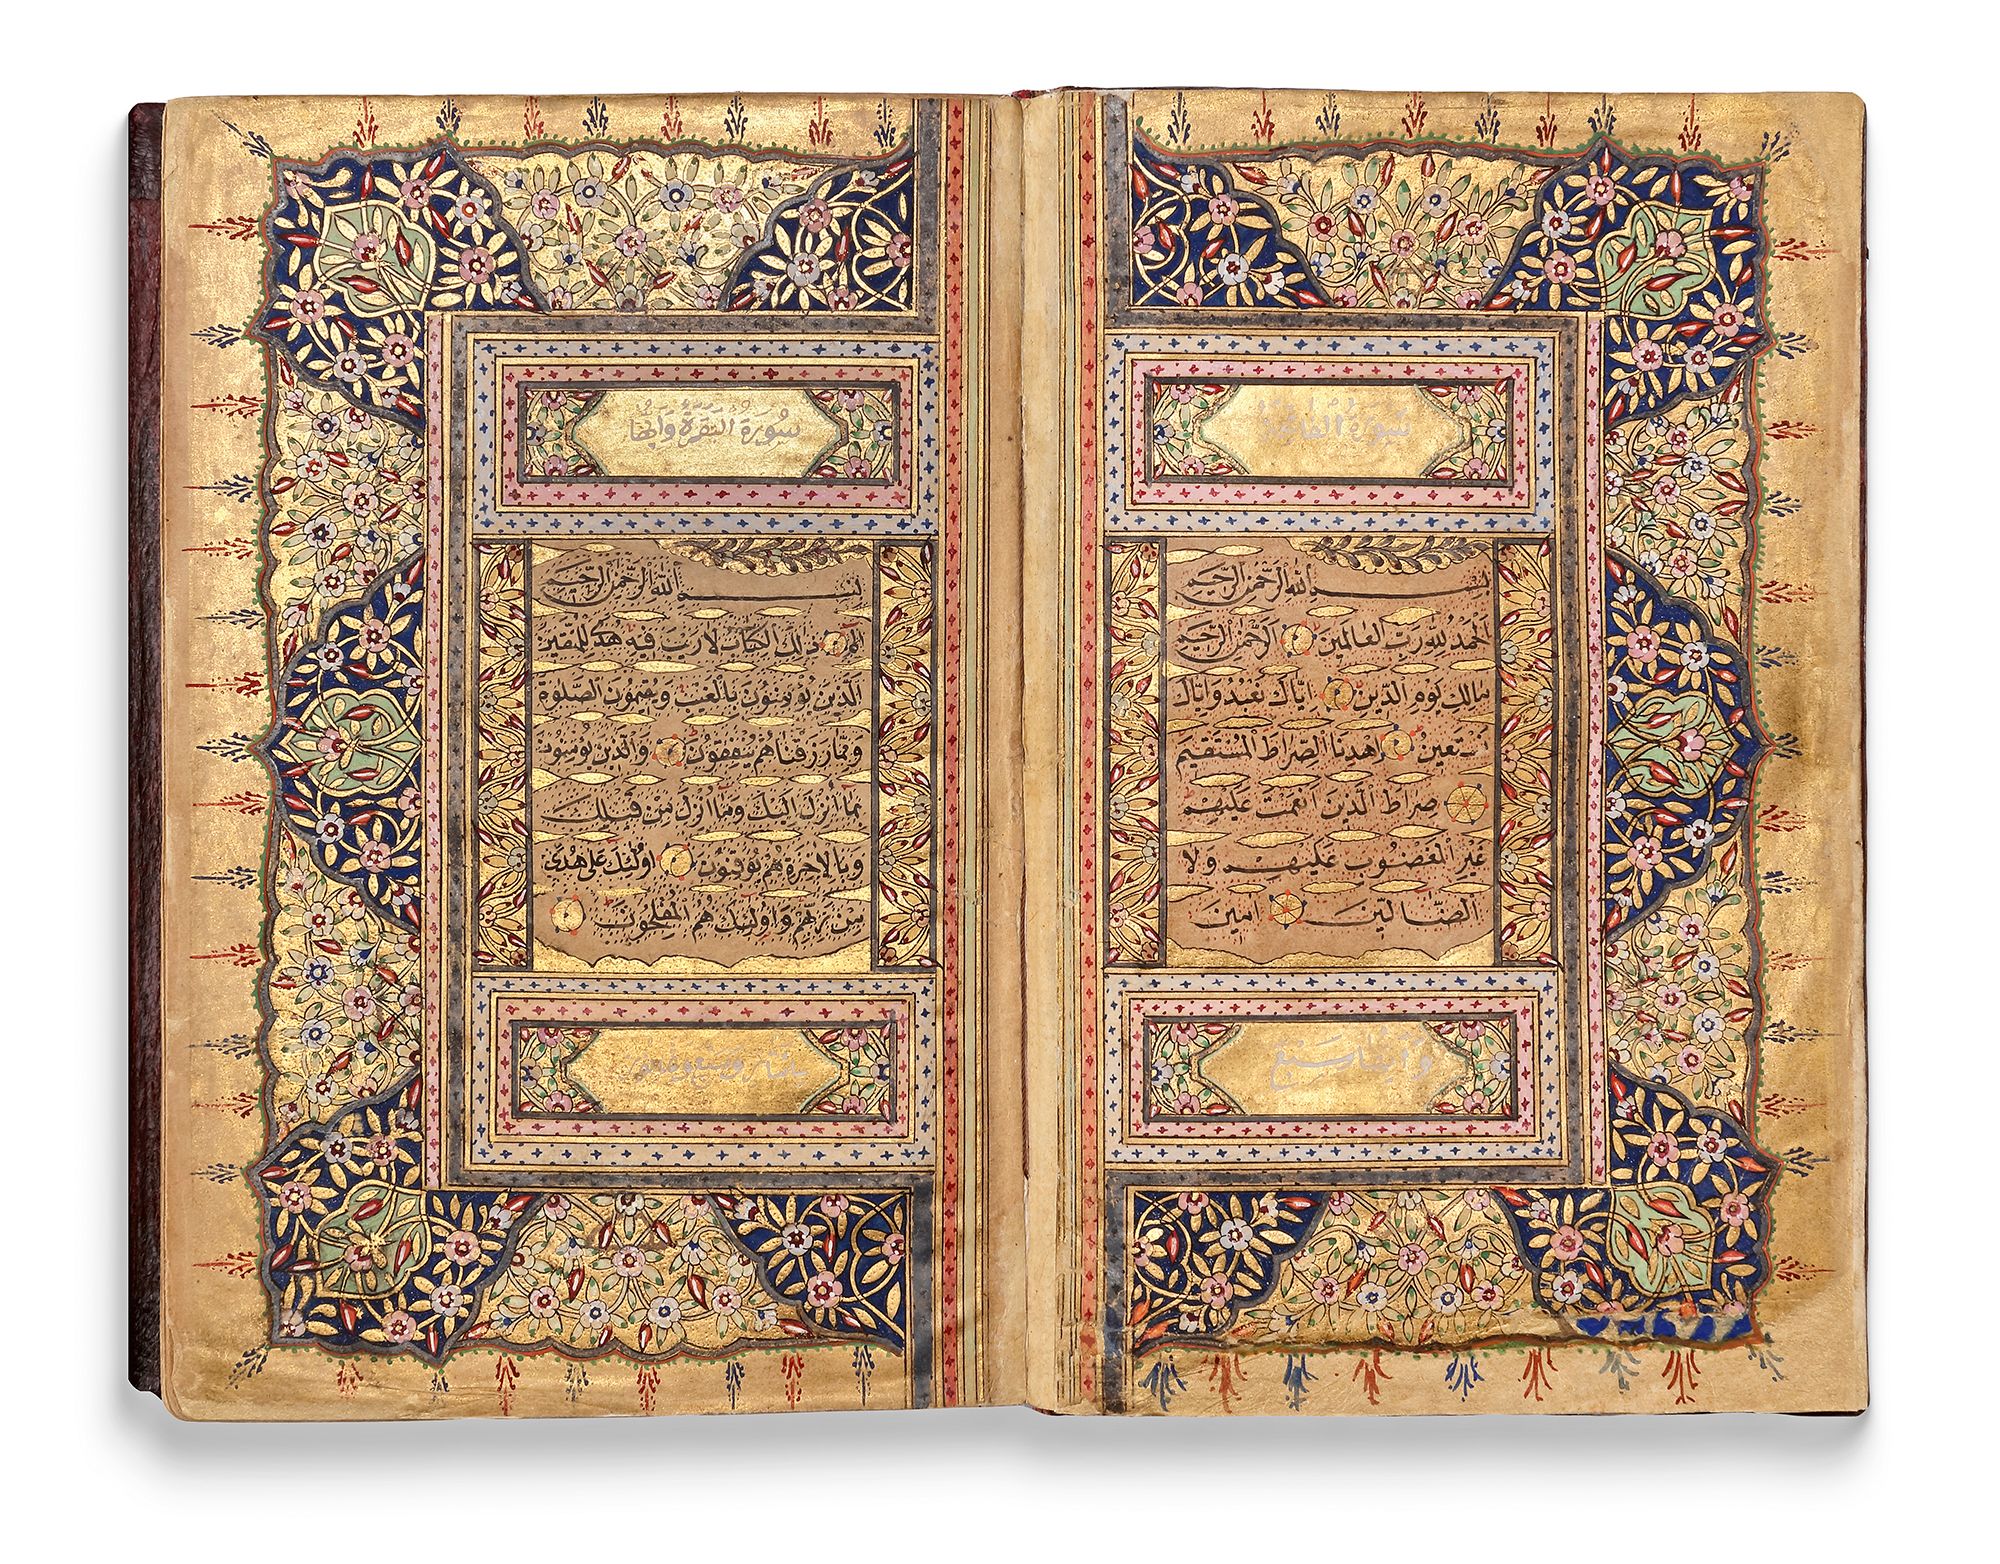 سورة الفاتحة
بسم الله الرحمن الرحيم
الحمد لله رب العالمين الرحمن الرحيم
مالك يوم الدين اياك نعبد واياك
نستعين اهدنا الصراط المستقيم
صراط الذين انعمت عليهم
غير المغضوب عليهم ولا
الضالين امين
وايتها سبع
سورة البقرة وايتها
بسم الله الرحمن الرحيم
الم ذلك الكتاب لا ريب فيه هدى للمتقين
الذين يؤمنون بالغيب ويقيمون الصلوة
ومما رزقناهم ينفقون والذين يؤمنون
بما أنزل اليك وما انزل من قبلك
وبالاخرة هم يوقنون اولئك على هدى
من ربهم واولئك هم المفلحون